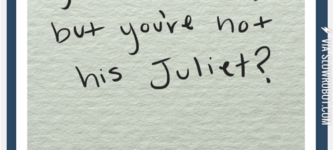 but you're not
his Juliet?
VIA SLOWROBOT.COM